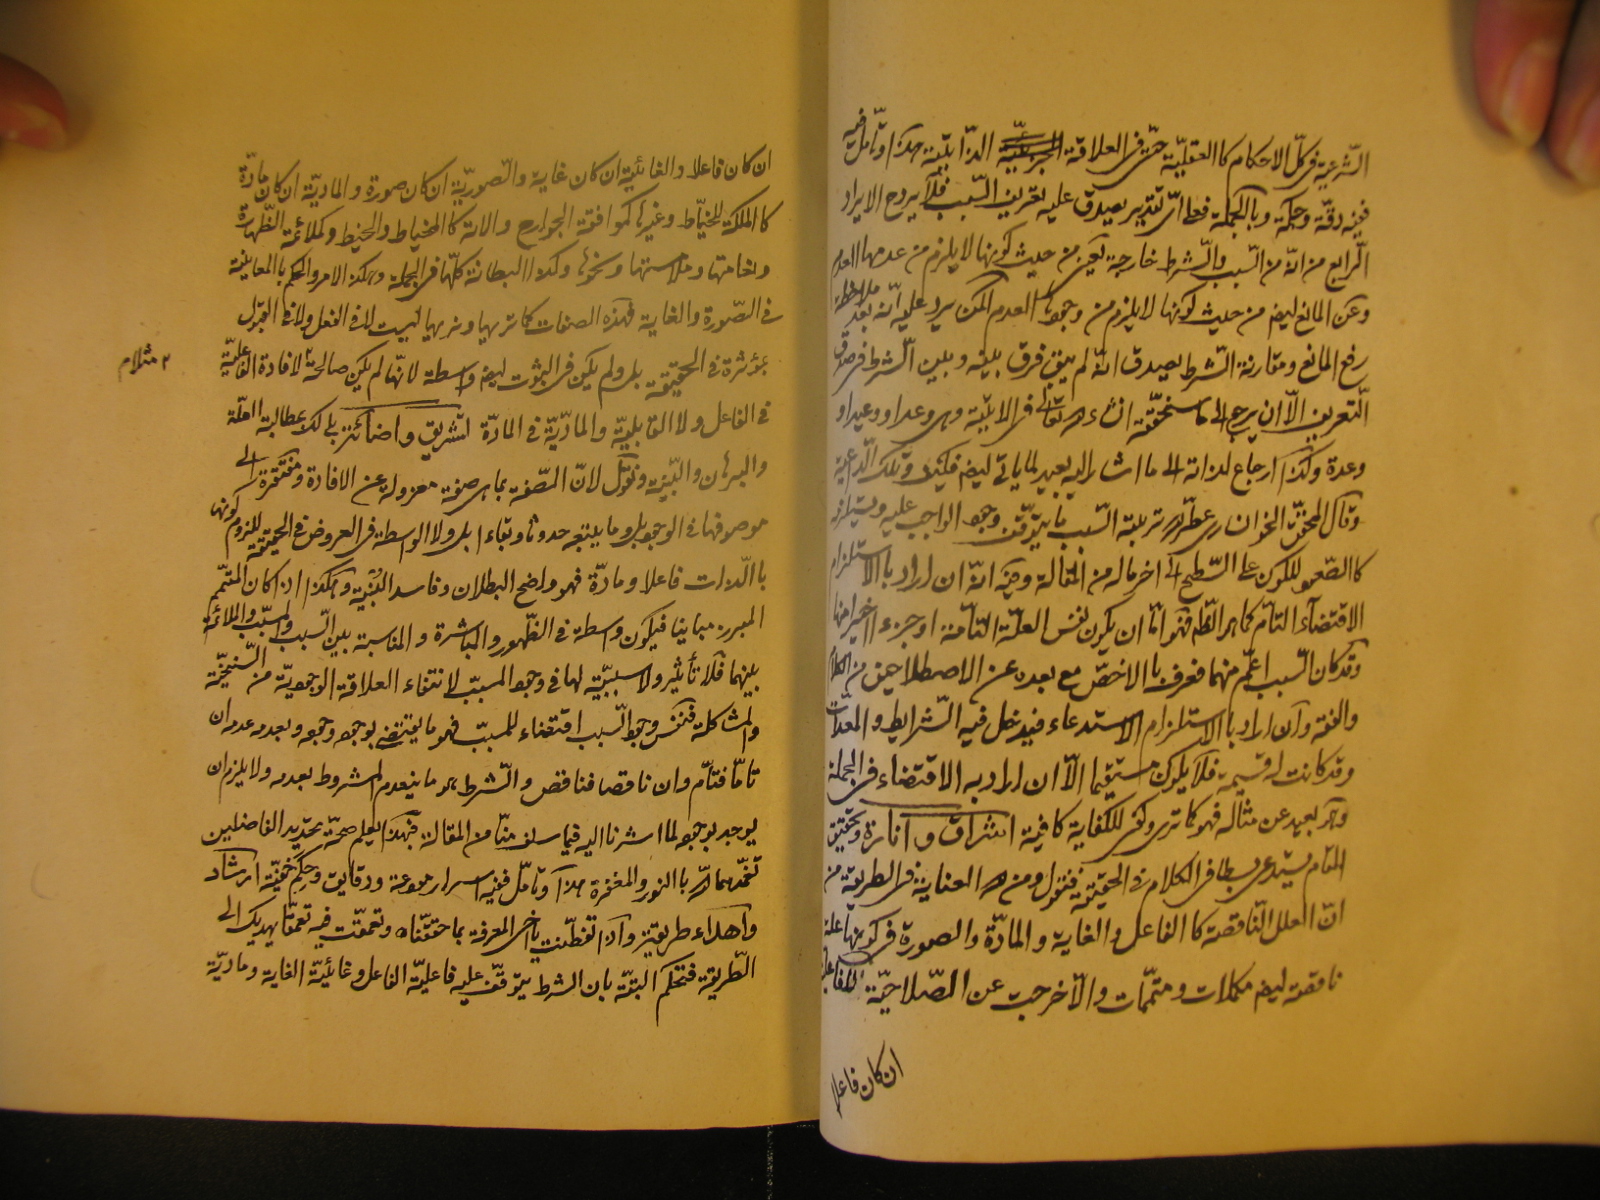 الشرعية في كل الاحكام كالعقلية حتى في العلاقة الذاتية هذا وتأمل فيه
فيه دقة وحكمة وبالجملة فعلى اى تقدير يصدق عليه تعريف السبب فلا يرد ح الايراد
الرابع من انه من السبب والشرط خارجة يعنى من حيث كونها لا يلزم من عدمها العدم
وعن المانع ايضا من حيث كونها لا يلزم من وجودها العدم لكن يرد عليه انه بعد ملاحظة
رفع المانع ومقارنة الشرط يصدق انه لم يبق فرق بينه وبين الشرط في صدق
التعريف الا ان يرجع الى ما سنحققه ان شاء الله تعالى في الاتية وهى وعد او وعيد او
وعدة وكذا ارجاع لذاته الى ما اشار اليه بعيد لما ياتى ايضا فليكن وتلك الداعية
وقال المحقق الخوانسارى عطر الله تربته السبب ما يتوقف وجود الواجب عليه ويستلزمه
كالصعود للكون على السطح الى اخر ماله من المقالة وفيه انه ان اراد بالاستلزام
الاقتضاء التام كما هو الظاهر فهو اما ان يكون نفس العلة التامة او جزء اخيرا منها
وقد كان السبب اعم منهما فعرف بالاخص مع بعده عن الاصطلاحين من الكلام
والفقه وان اراد بالاستلزام الاستدعاء فيدخل فيه الشرايط والمعدات
وقد كانت له قسيمة فلا يكون مستقيما الا ان اراد به الاقتضاء في الجملة
وهو بعيد عن مثاله فهو كما ترى ولكن للكفاية كافية اشراق وانارة وتحقيق
المقام يستدعى بسطا في الكلام في الحقيقة فنقول ومن الله العناية في الطريقة من
ان العلل الناقصة كالفاعل والغاية والمادة والصورة في كونها علة
ناقصة ايضا مكملات ومتممات والا خرجت عن الصلاحية للفاعلية
ان كان فاعلا
ان كان فاعلا والغائية ان كان غاية والصورية ان كان صورة والمادية ان كان مادة
كالملكة للخياط وغيرها كموافقة الجوارح والالة كالمخياط والخيط وكملائمة الظهارة
ونعامتها وملاستها ونحوها وكذا البطانة كلها في الجملة وهكذا الامر والحكم بالمعاينة
في الصورة والغاية فهذه الصفات كما تريها ونريها ليست لا في الفعل ولا في القبول
بمؤثرة في الحقيقة بل ولم يكن في الثبوت ايضا واسطة لانها لم يكن صالحة لافادة الفاعلية
٢ مثلا م
في الفاعل ولا القابلية والمادية في المادة تشريق واضائة بل لك بمطالبة العلة
والبرهان والبينة ونقول لان الصفة بما هى صفة معزولة عن الافادة ومفتقرة الى
موصوفها في الوجود بل وما يتبعه حدوثا وبقاء بل ولا الواسطة في العروض في الحقيقة للزوم كونها
بالذات فاعلا ومادة فهو واضح البطلان وفاسد البنية وهكذا اذا كان المتمم
المبرز مباينا فيكون واسطة في الظهور والمباشرة والمناسبة بين السبب والمسبب والملائمة
بينهما فلا تأثير ولا سببية لها في وجود المسبب لانتفاء العلاقة الوجودية من السنخية
والمشاكلة فنفس وجود السبب اقتضاء للمسبب فهو ما يقتضى بوجوده وجوده وبعدمه عدمه ان
تاما فتام وان ناقصا فناقص والشرط هو ما ينعدم المشروط بعدمه ولا يلزم ان
يوجد بوجوده لما اشرنا اليه فيما سلف منا من المقالة فبهذا يعلم صحة تحديد الفاضلين
تغمدهما الله بالنور والمغفرة هذا وتأمل ففيه اسرار مودعة ودقايق وحكم خفية ارشاد
واهداء طريقة واذا تفطنت يا اخى المعرفة بما حققناه وتعمقت فيه تعمقا يهديك الى
الطريقة فتحكم البتة بان الشرط يتوقف عليه فاعلية الفاعل وغائية الغاية ومادية